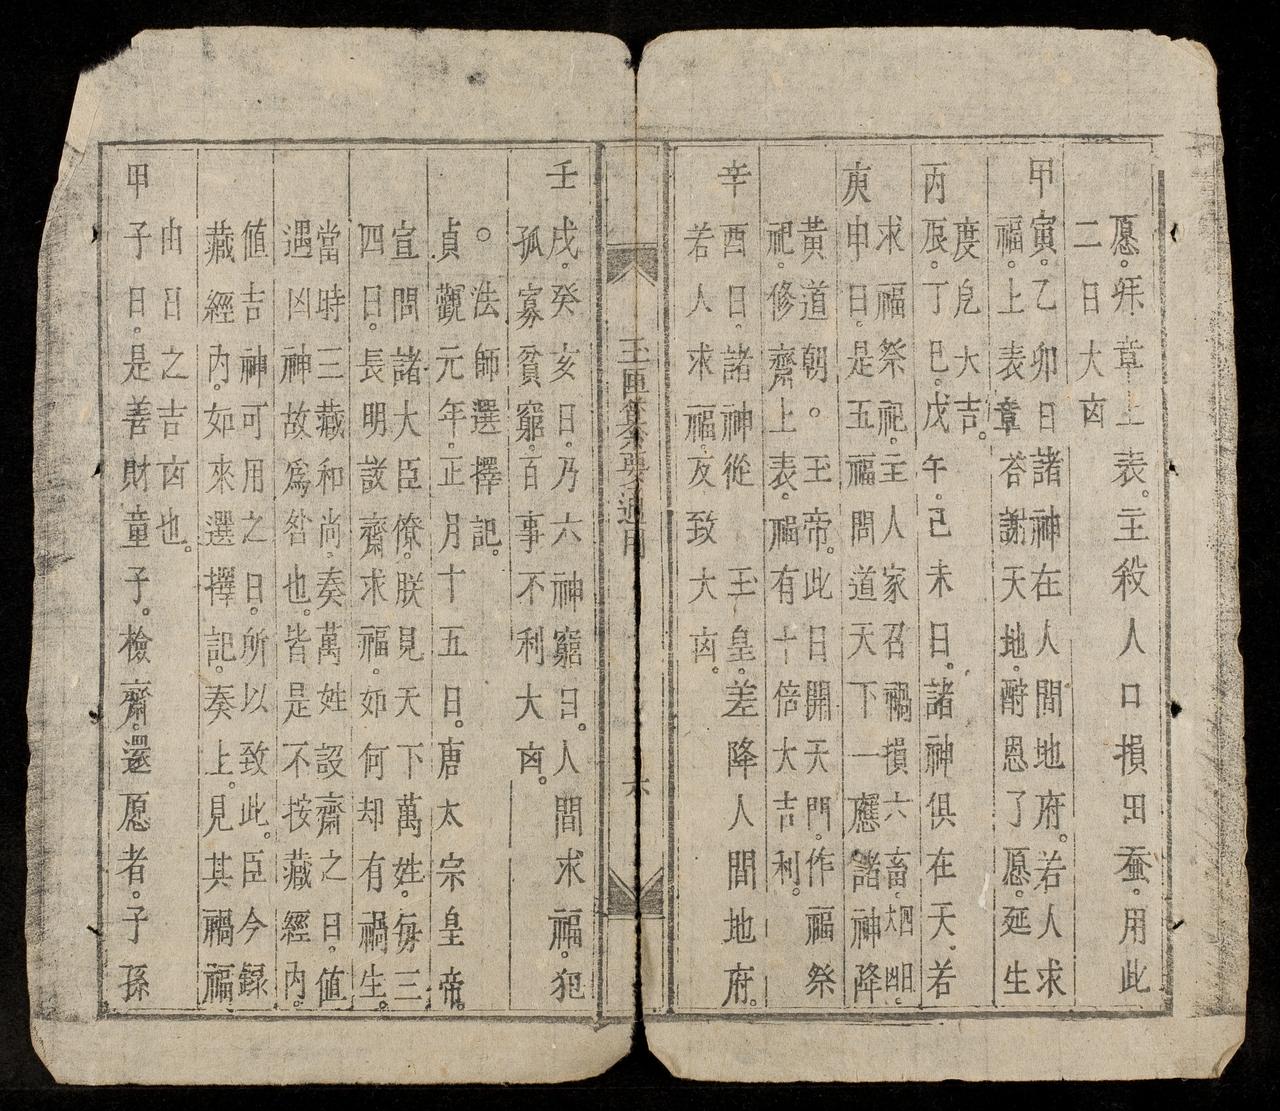 愿。拜章上表。主殺人口損田蚕。用此
二日大凶
甲寅。乙卯日諸神在人間地府。若人求
福。上表章荅謝天地。酧恩了愿。延生
度厄大吉。
丙辰。丁巳。戊午。己未日。諸神俱在天。若
求福祭祀。主人家召禍損六畜四日大凶。
庚申日。是五福問道天下一應諸神降
黃道朝。玉帝。此日開天門。作福祭
祀。修齋上表。福有十倍大吉利。
辛酉日。諸神從 玉皇。差降人間地府。
若人求福。反致大凶。
玉匣集
六
壬戌。癸亥日。乃六神窮日。人間求福。犯
孤寡貧窮。百事不利大凶。
○法師選擇記。
貞觀元年。正月十五日。唐太宗皇帝。
宣問諸大臣僚。朕見天下萬姓。每三
四日。長明設齋求福。如何却有禍生。
當時三藏和尚奏萬姓設齋之日。值
遇凶神故爲咎也。皆是不按藏經內。
值吉神可用之日。所以致此。臣今録
藏經內。如來選擇記。奏上。見其禍福
由日之吉凶也。
甲子日。是善財童子。檢齋。還愿者。子孫